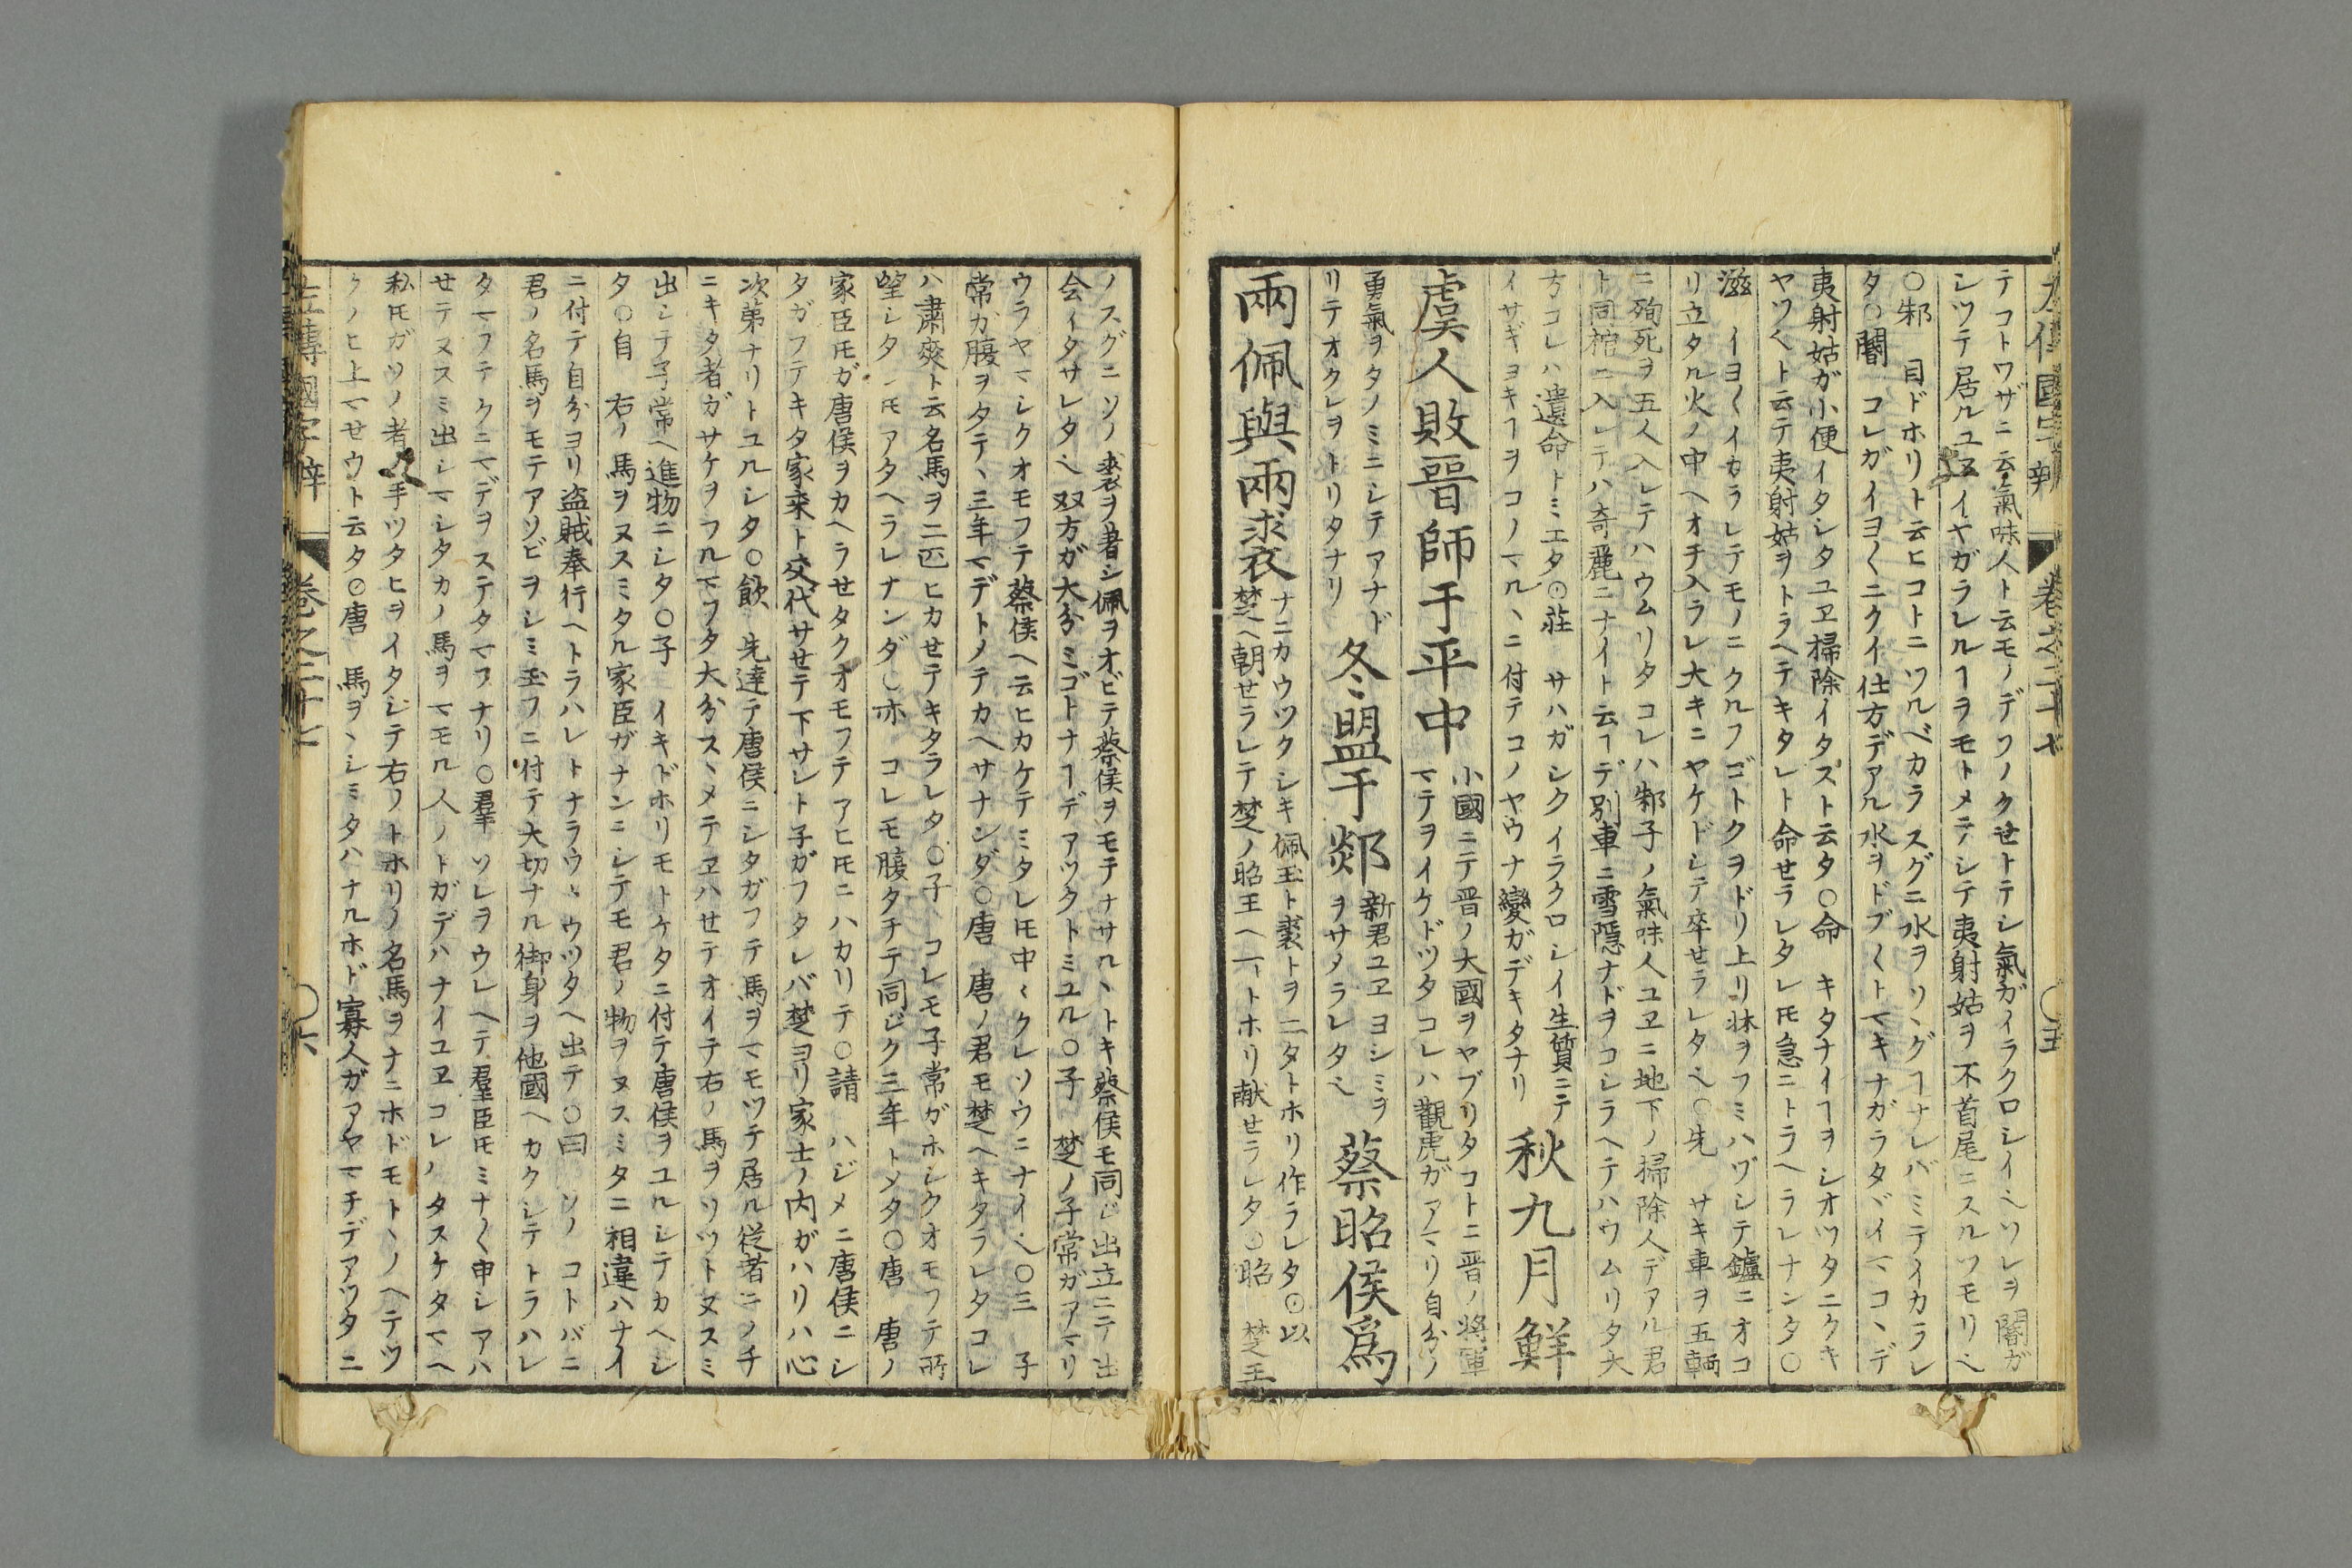 左傳國字辯 巻之二十七 〇五
テコトワザニ云氣味人ト云モノデフノクせトテシ氣ガイラクロシイ〻ソレヲ閽ガ
シツテ居ルユヱイヤガラレルヿヲモトメテシテ夷射姑ヲ不首尾ニスルツモリ〻
〇邾 目ドホリト云ヒコトニツルベカラスグニ水ヲソヽグヿナレバミテイカラレ
タ〇閽 コレガイヨ〱ニクイ仕方デアル水ヲドブ〱トマキナガラタヾイマコヽデ
夷射姑ガ小便イタシタユヱ掃除イタスト云タ〇命 キタナイヿヲシオツタニクキ
ヤツ〻ト云テ夷射姑ヲトラヘテキタレト命せラレタレ𪜈急ニトラヘラレナンタ〇
滋 イヨ〱イカラレテモノニクルフゴトクヲドリ上リ牀ヲフミハヅシテ鑪ニオコ
リ立タル火ノ中ヘオチ入ラレ大キニヤケドシテ卒せラレタ〻〇先 サキ車ヲ五輌
ニ殉死ヲ五人入レテハウムリタコレハ邾子ノ氣味人ユヱニ地下ノ掃除人デアル君
ト同棺ニ入レテハ奇麗ニナイト云ヿデ別車ニ雪隠ナドヲコシラヘテハウムリタ大
方コレハ遺命トミエタ〇莊 サハガシクイラクロシイ生質ニテ
イサギヨキヿヲコノマルヽニ付テコノヤウナ變ガデキタナリ
秋九月鮮
虞人敗晉師于平中
小國ニテ晋ノ大國ヲヤブリタコトニ晋ノ將軍
マテヲイケドツタコレハ觀虎ガアマリ自分ノ
勇氣ヲタノミニシテアナド
リテオクレヲトリタナリ
冬盟于郯
新君ユヱヨシミヲ
ヲサメラレタ〻
蔡昭侯爲
兩佩與兩裘
ナニカウツクシキ佩玉ト裘トヲ二タトホリ作ラレタ〇以
楚ヘ朝せラレテ楚ノ昭王ヘ一トホリ献せラレタ〇昭 楚王
ノスグニソノ裘ヲ着シ佩ヲオビテ蔡侯ヲモテナサルヽトキ蔡侯モ同じ出立ニテ出
会イタサレタ〻双方ガ大分ミゴトナヿデアツタトミユル〇子 楚ノ子常ガアマリ
ウラヤマシクオモフテ蔡侯ヘ云ヒカケテミタレ𪜈中〻クレソウニナイ〻〇三 子
常ガ腹ヲタテヽ三年マデトメテカヘサナンダ〇唐 唐ノ君モ楚ヘキタラレタコレ
ハ肅爽ト云名馬ヲ二匹ヒカせテキタラレタ〇子 コレモ子常ガホシクオモフテ所
望シタレ𪜈アタヘラレナンダ〇亦 コレモ腹タチテ同じク三年トメタ〇唐 唐ノ
家臣𪜈ガ唐侯ヲカヘラせタクオモフテアヒ𪜈ニハカリテ〇請 ハジメニ唐侯ニシ
タガフテキタ家来ト交代サせテ下サレト子ガフタレバ楚ヨリ家士ノ内ガハリハ心
次第ナリトユルシタ〇飲 先達テ唐侯ニシタガフテ馬ヲマモツテ居ル従者ニノチ
ニキタ者ガサケヲフルマフタ大分スヽメテヱハせテオイテ右ノ馬ヲソツトヌスミ
出シテ子常ヘ進物ニシタ〇子 イキドホリモトケタニ付テ唐侯ヲユルシテカヘシ
タ〇自 右ノ馬ヲヌスミタル家臣ガナンニシテモ君ノ物ヲヌスミタニ相違ハナイ
ニ付テ自分ヨリ盗賊奉行ヘトラハレトナラウヽウツタヘ出テ〇曰 ソノコトバニ
君ノ名馬ヲモテアソビヲシミ玉フニ付テ大切ナル御身ヲ他國ヘカクシテトラハレ
タマフテクニマデヲステタマフナリ〇羣 ソレヲウレヘテ羣臣𪜈ミナ〱申シアハ
せテヌスミ出シマシタカノ馬ヲマモル人ノトガデハナイユヱコレノタスケタマヘ
私𪜈ガソノ者ヘ手ツタヒヲイタシテ右ノトホリノ名馬ヲナニホドモトヽノヘテツ
クノヒ上マせウト云タ〇唐 馬ヲヽシミタハナルホド寡人ガアヤマチデアツタニ
左傳國字辯 巻之二十七 〇六